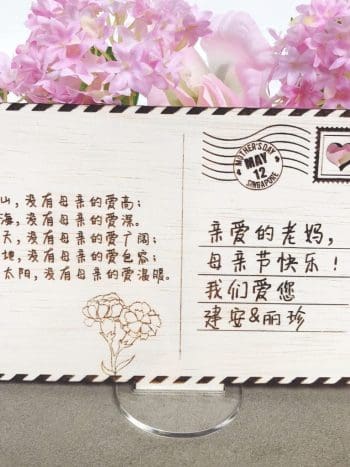 山，没有母亲的爱高；
海，没有母亲的爱深。
天，没有母亲的爱广阔；
地，没有母亲的爱包容；
太阳，没有母亲的爱温暖。
MOTHER'S DAY
MAY
12
SINGAPORE
亲爱的老妈，
母亲节快乐！
我们爱您
建安&丽珍